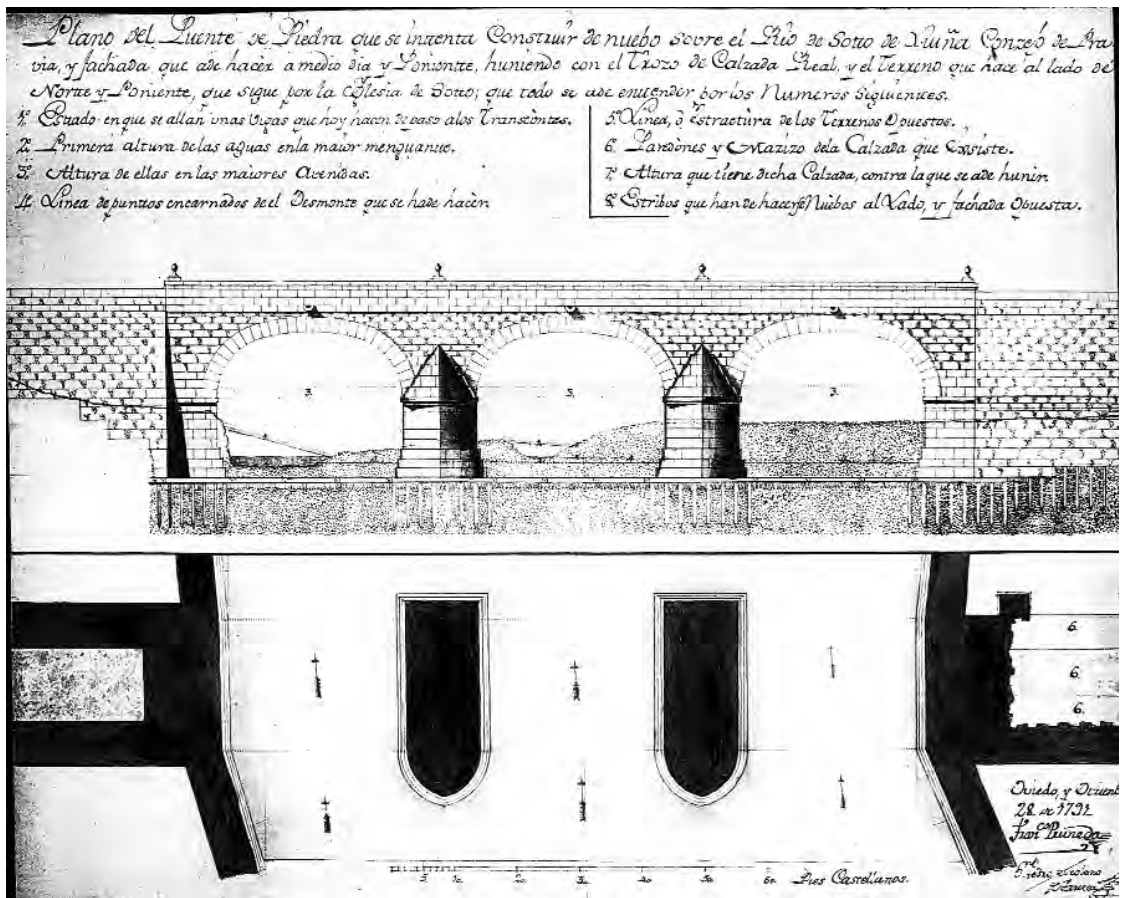 Plano del Puente de Piedra que se inttenta Construir de nuebo Sovre el Rio de Sotto de Luiña Conzejo de Pra-
via, y fachada que ade hacer a medio dia y Ponientte, huniendo con el Trozo de Calzada Real, y el Terreno que hace al lado de
Nortte y Poniente, que sigue por la Yglesia de Sotto; que todo se ade entender por los Numeros Siguientes.
1º Estado en que se allan unas Vigas que hoy hacen de paso alos Transeuntes.
2º Primera altura de las aguas enla maior menguante.
3º Altura de ellas en las maiores Avenidas.
4º Linea de puntos encarnados de el Desmonte que se hade hacer.
5º Linea, ò estractura de los Terrenos Opuestos.
6º Paredones y Mazizo dela Calzada que Existe.
7º Altura que tiene dicha Calzada, contra la que se ade hunir.
8º Estribos que han de hacerse Nuebos al Lado, y fachada Opuesta.
3.
3.
3.
2.
6.
6.
6.
5. 10. 20. 30. 40. 50. 60. Pies Castellanos.
Oviedo, y
28 de 1792
Franco Pruneda